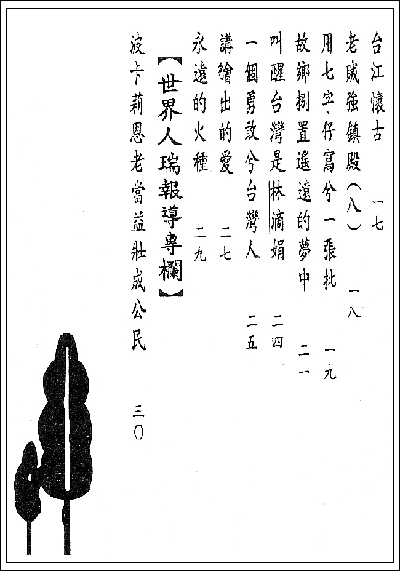 台江懷古 一七
老賊強鎮殿(八) 一八
用七字仔寫兮一張批 一九
故鄉捌置遙遠的夢中 二一
叫醒台灣是林滴娟 二四
一個勇敢兮台灣人 二五
講繪出的愛 二七
永遠的火種 二九
【世界人瑞報導專欄】
波卡莉恩老當益壯成公民 三〇